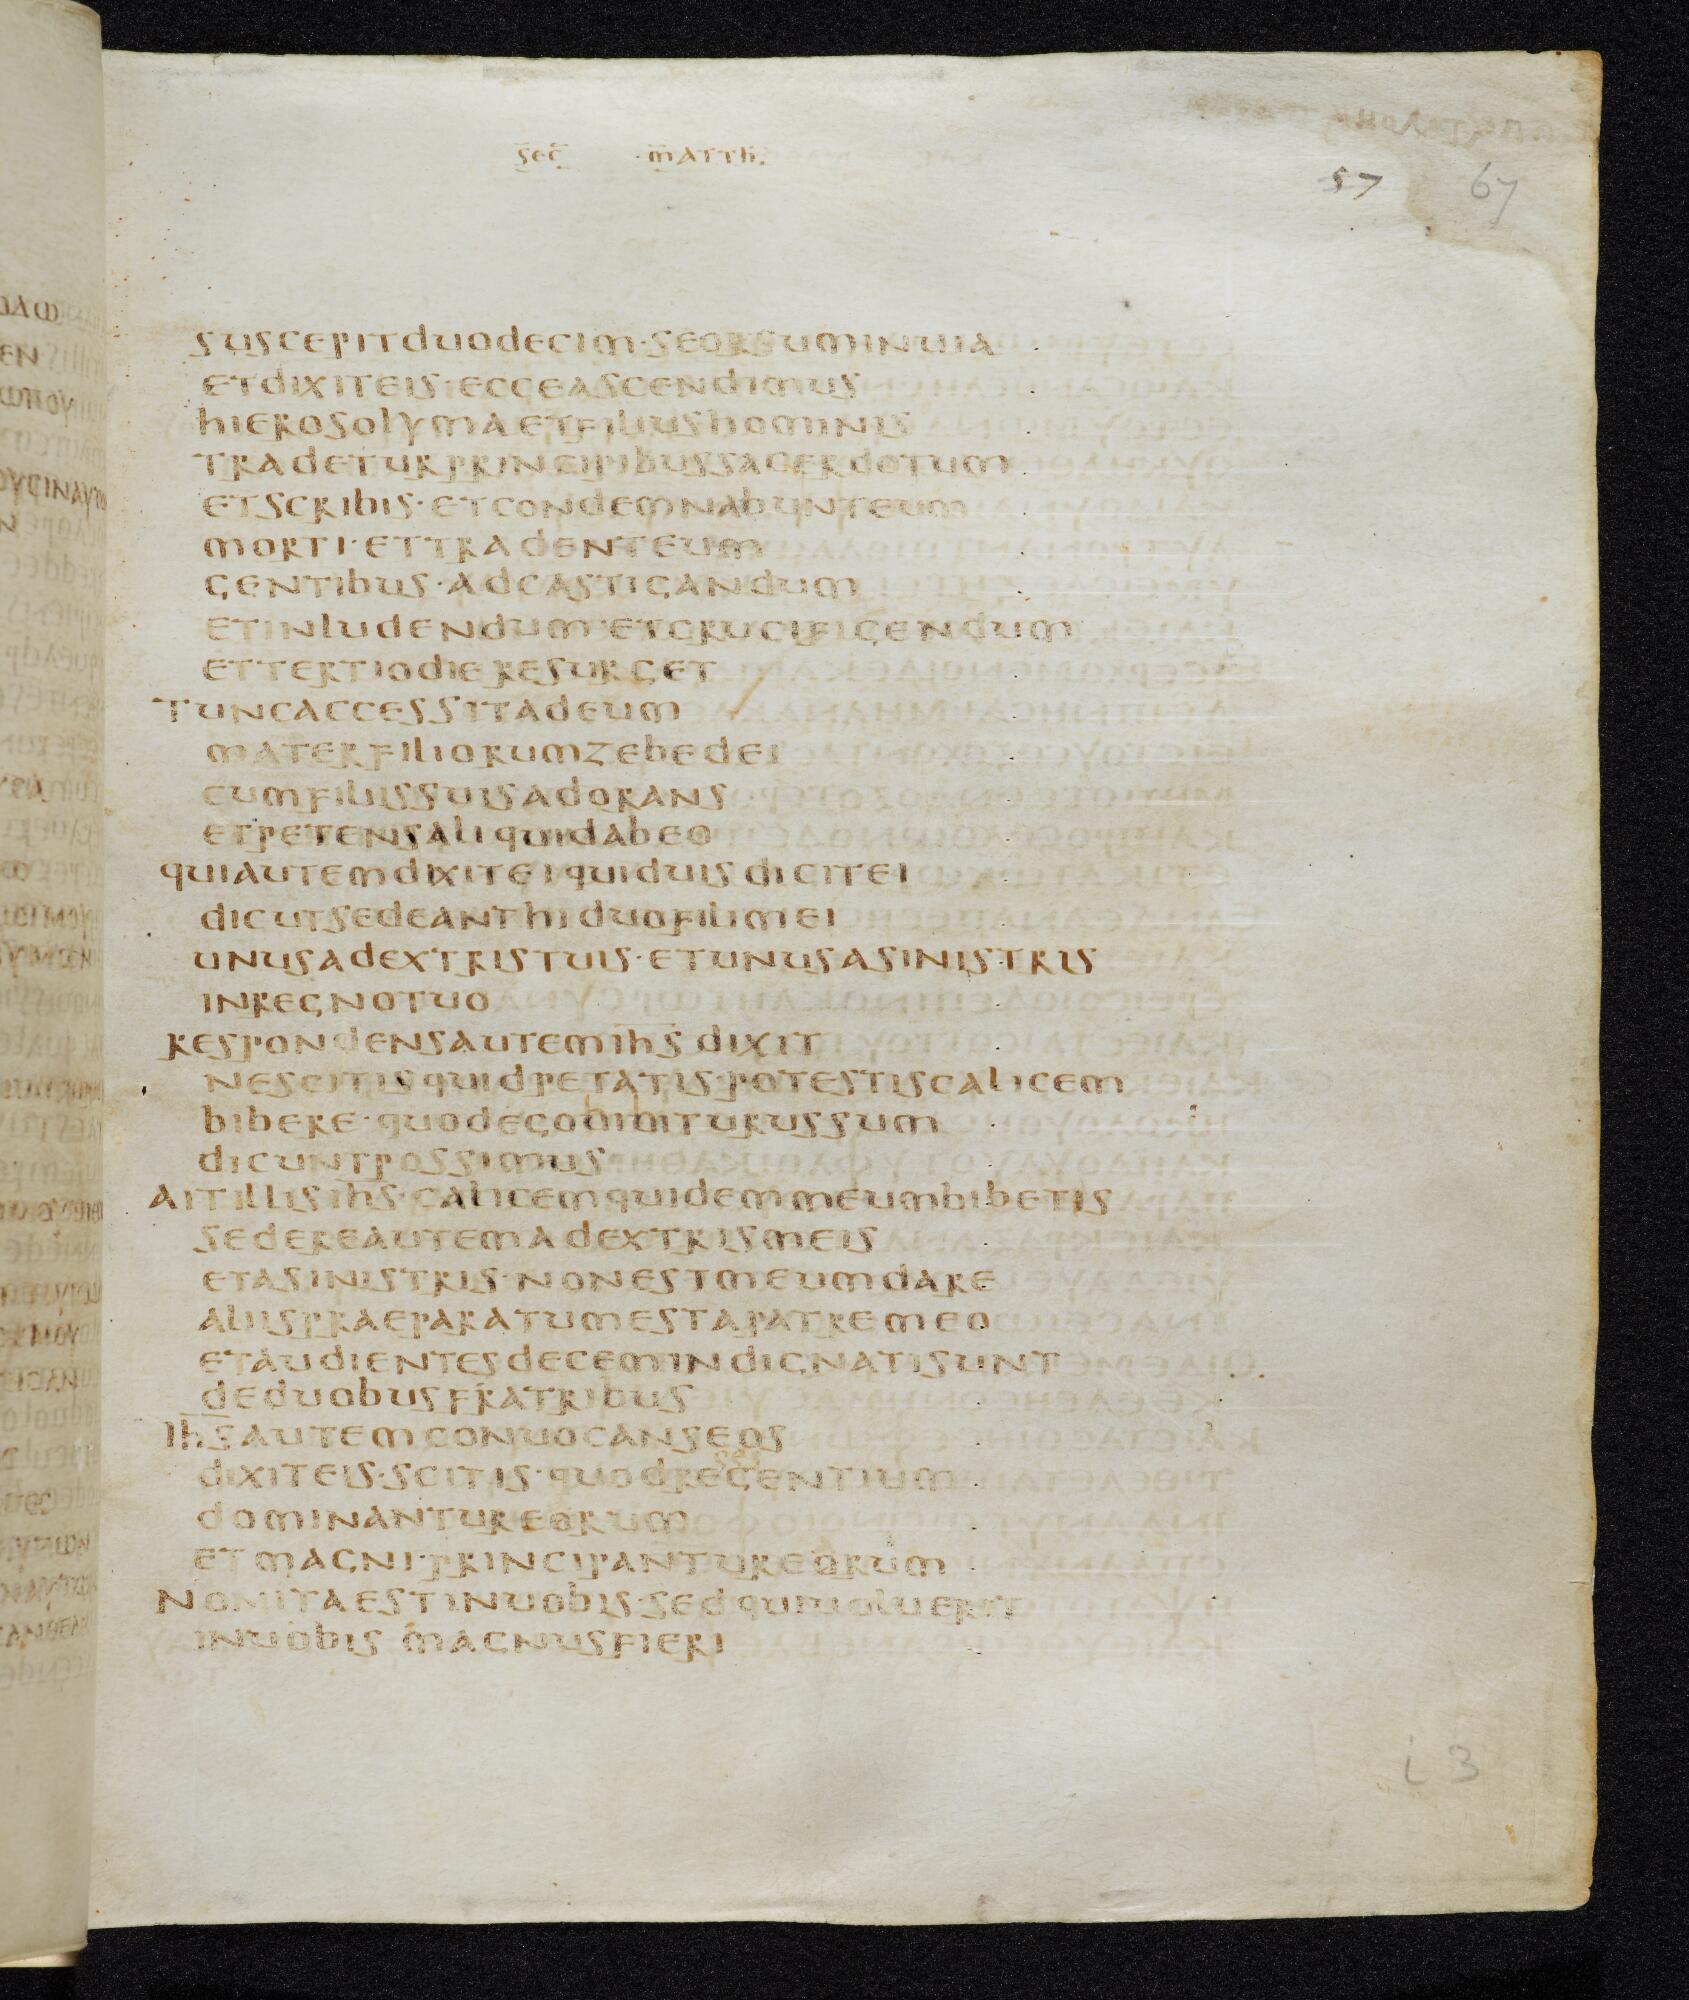 sec · matth.
57 67
suscepit duodecim · seorsum in uia
et dixit eis · ecce ascendimus
hierosolyma et filius hominis
tradetur principibus sacerdotum
et scribis · et condemnabunt eum
morti · et tradent eum
gentibus · ad castigandum
et inludendum · et crucifigendum
et tertio die resurget
Tunc accessit ad eum
mater filiorum zebedei
cum filiis suis adorans
et petens aliquid ab eo
qui autem dixit ei quid uis dicit ei
dic ut sedeant hi duo fili mei
unus ad extris tuis · et unus a sinistris
in regno tuo
respondens autem ihs dixit
nescitis quid petatis · potestis calicem
bibere · quod ego bibiturus sum
dicunt possimus
Ait illis ihs · calicem quidem meum bibetis
sedere autem ad extris meis
et a sinistris · non est meum dare
aliis praeparatum est a patre meo
et audientes decem indignati sunt
de duobus fratribus
Ihs autem conuocans eos
dixit eis · scitis · quod rege gentium
dominantur eorum
et magni · principantur eorum
Non ita est in uobis · sed qui uoluerit
in uobis magnus fieri
i 3